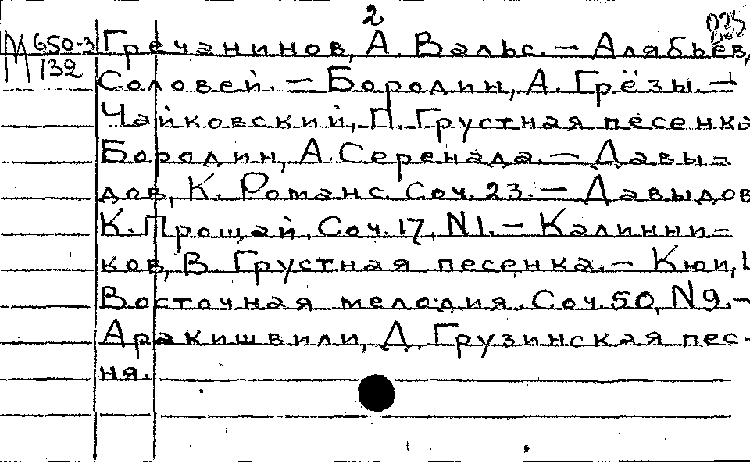 2
М 650-3
132
Гречанинов, А. Вальс. — Алябьев,
Соловей. — Бородин, А. Грёзы. —
Чайковский, П. Грустная песенка
Бородин, А. Серенада. — Давы-
дов, К. Романс. Соч. 23. — Давыдов
К. Прощай, Соч. 17, N1. — Калинни-
ков, В. Грустная песенка. — Кюи,
Восточная мелодия. Соч. 50, N9. —
Аракишвили, Д. Грузинская пес-
ня.